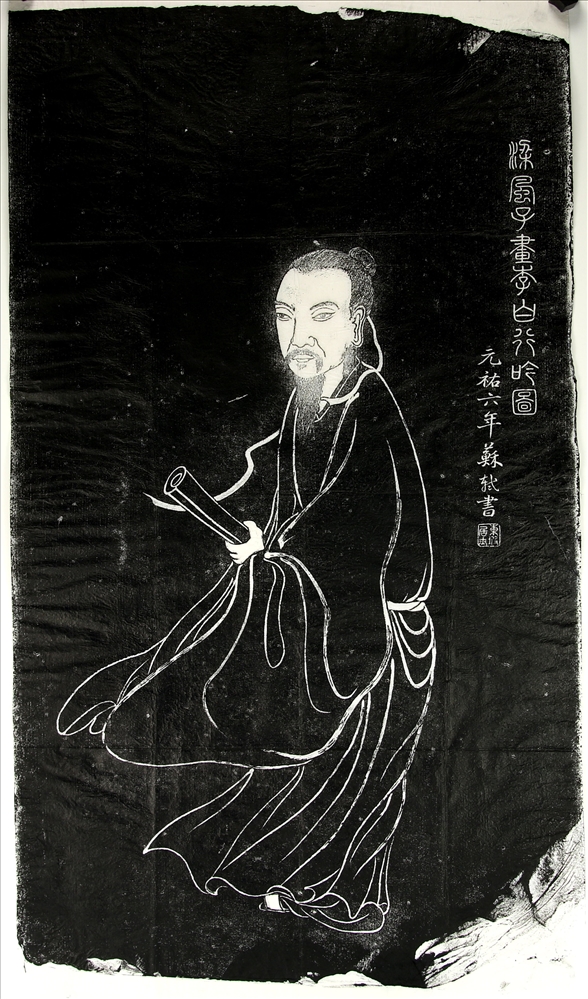 梁風子畫李白行吟圖
元祐六年蘇軾書
東坡居士